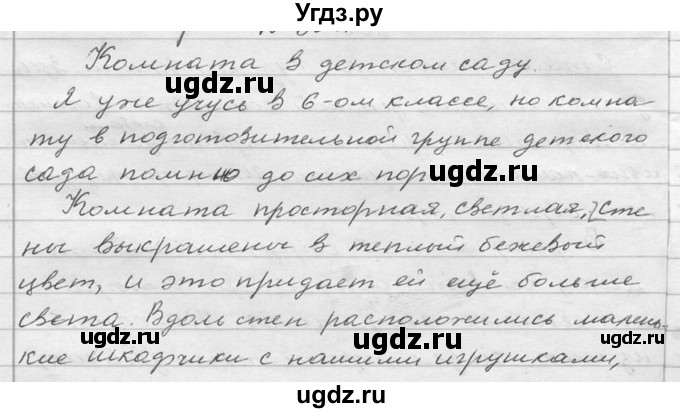 Угдз.ру
Комната в детском саду.
Я уже учусь в 6-ом классе, но комна-
ту в подготовительной группе детского
сада помню до сих пор
ugdz.ru
Комната просторная, светлая, Сте
ны выкрашены в теплый бежевый
цвет, и это придает ей ещё больше
света. Вдоль стен расположились малень-
кие шкафчики с нашими игрушками,
ugdz.ru
ugdz.ru
ugdz.ru
ugdz.ru